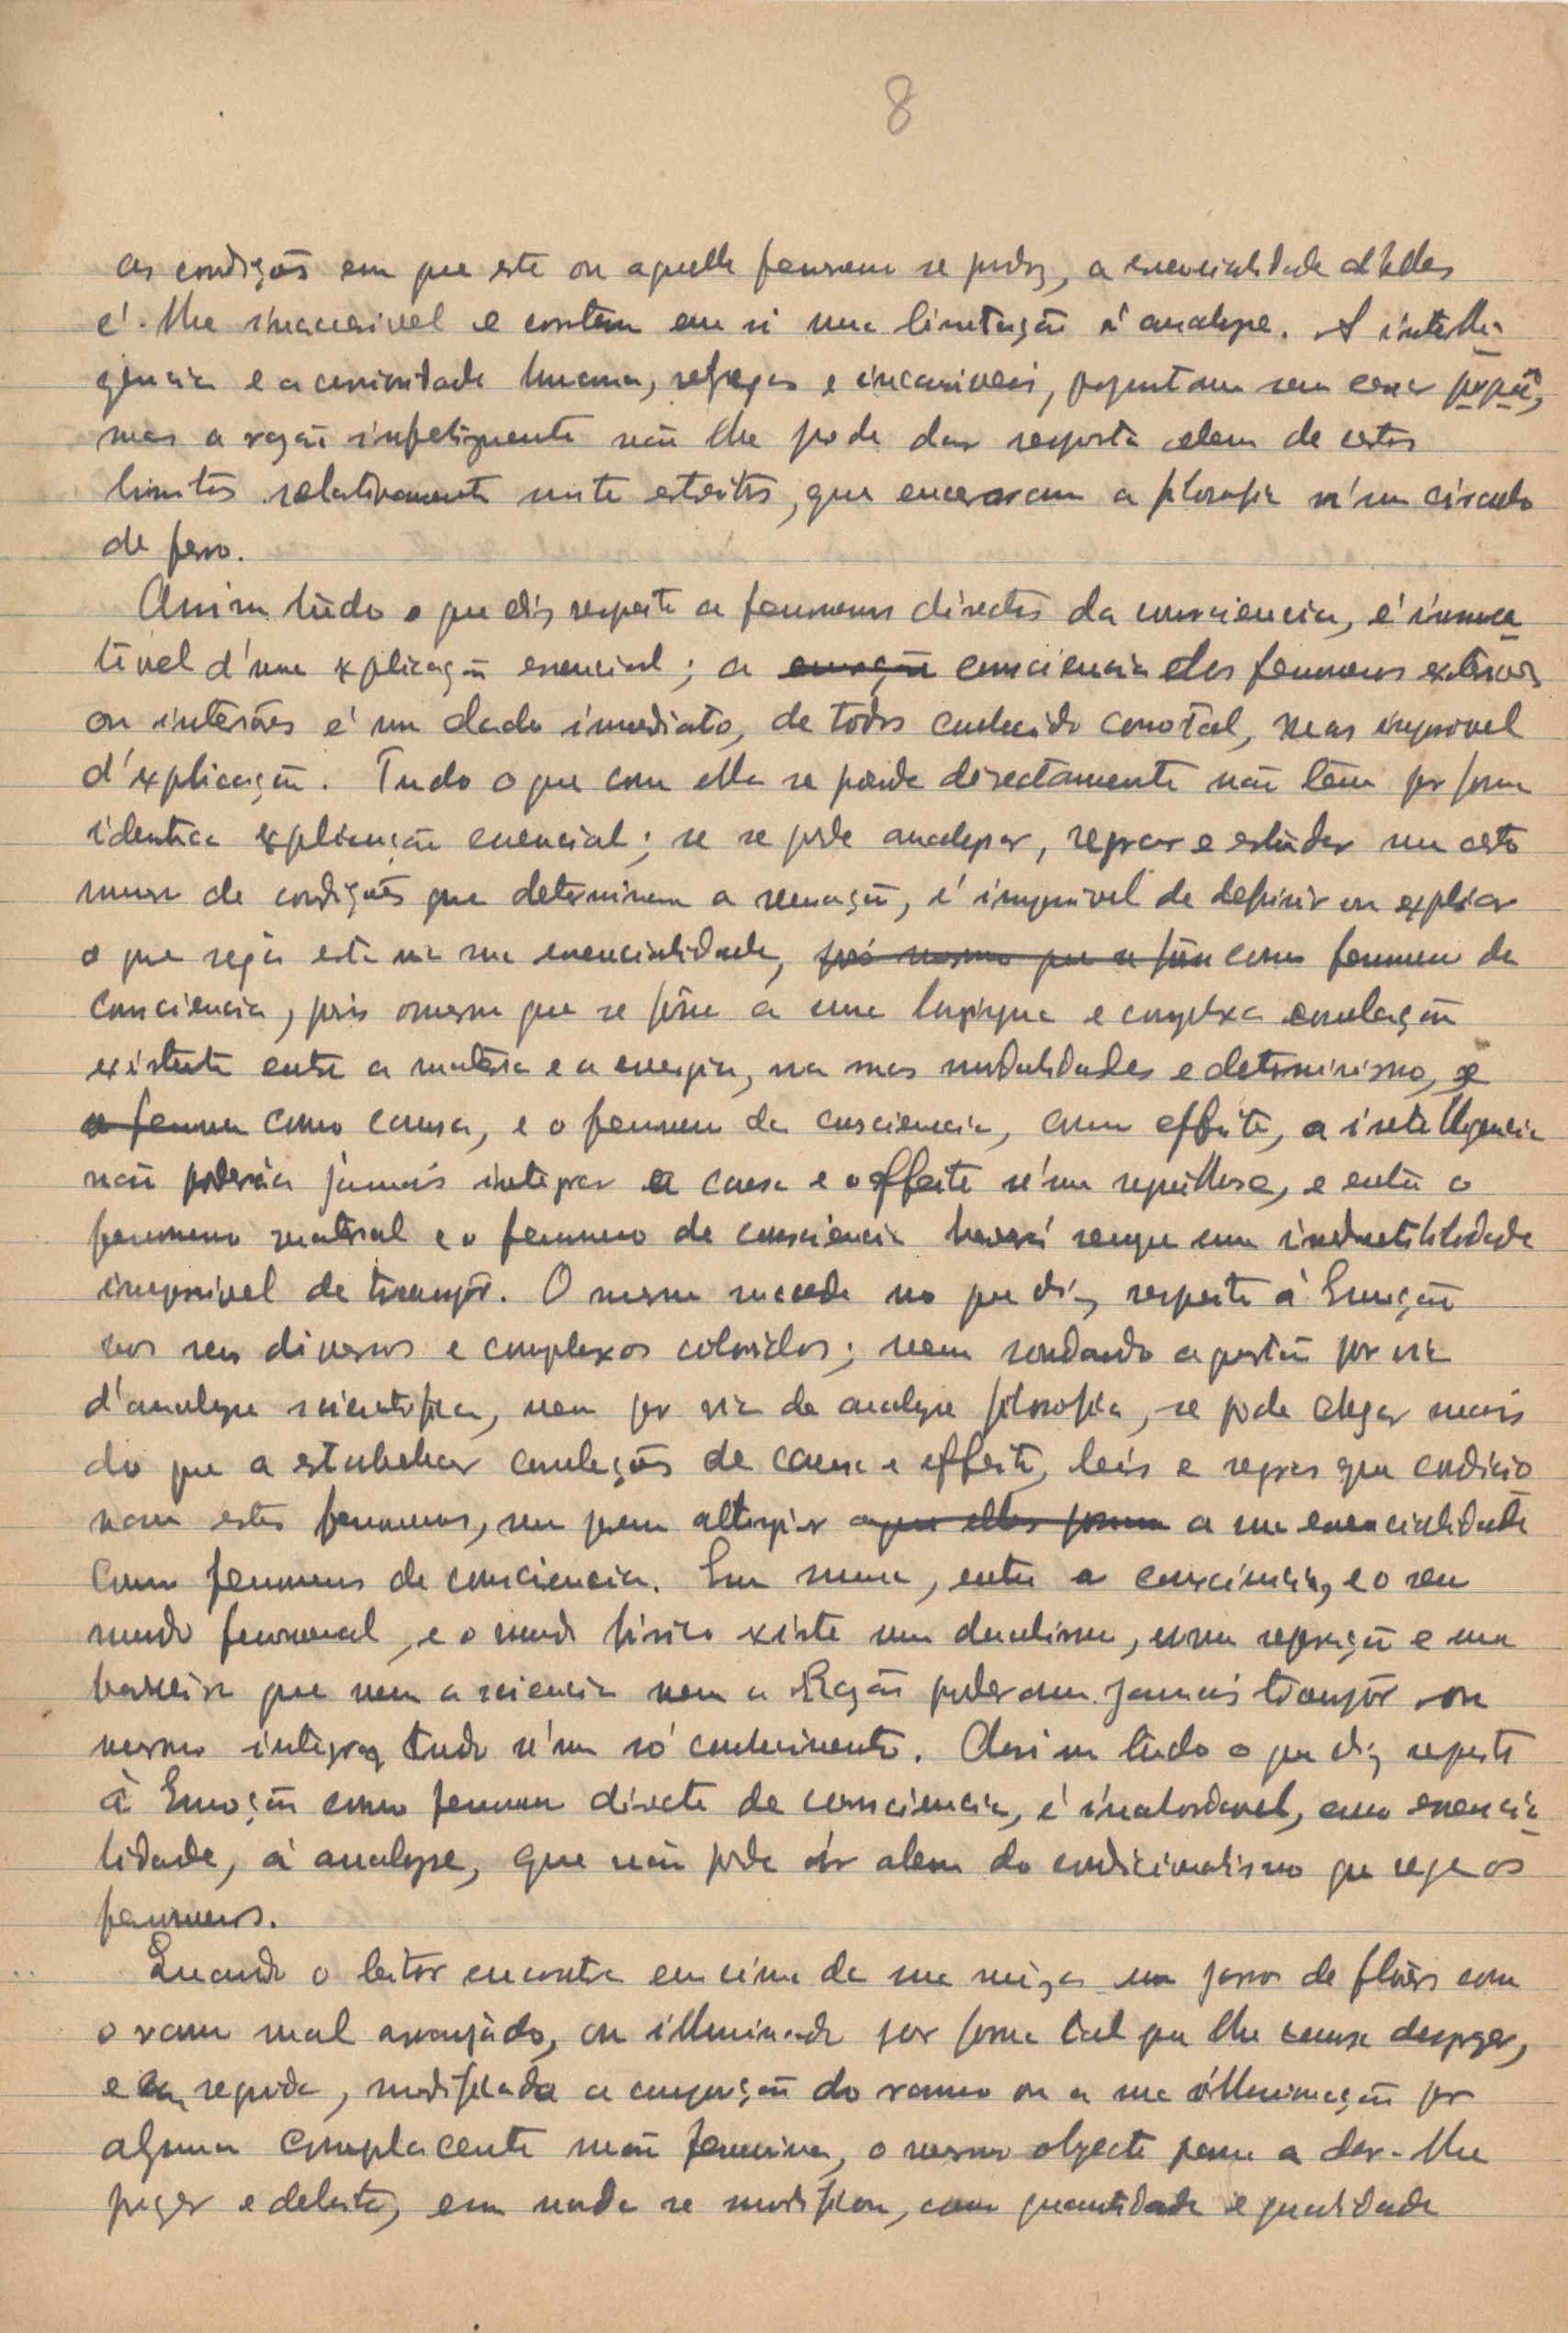 8
as condições em que este ou aquelle fenomeno se produz, a essencialidade d'elles
é-lhe inaccessivel e contem em si uma limitação á analyse. A intelli-
gencia e a curiosidade humana, sofregas e incansaveis, perguntam sem cessar porquê,
mas a razão infelizmente não lhe pode dar resposta alem de certos
limites relativamente muito estreitos, que encerraram a filosofia n'um circulo
de ferro.
Assim tudo o que diz respeito a fenomenos directos da consciencia, é insusce
tivel d'uma explicação essencial; a emoção consciencia dos fenomenos exteriores
ou interiores é um dado immediato, de todos conhecido como tal, mas impossivel
d'explicação. Tudo o que com ella se prende directamente não tem por forma
identica explicação essencial; se se pode analysar, regrar e estudar um certo
numero de condições que determinam a sensação, é impossivel de definir ou explicar
o que seja esta na sua essencialidade, como fenomeno de
consciencia, pois mesmo que se fôsse a uma longiqua e complexa correlação
existente entre a materia e a energia, nas suas modalidades e determinismo, e
o fenomeno como causa, e o fenomeno da consciencia, como effeito, a intelligencia
não poderia jamais integrar a causa e o effeito n'um repellese, e entre o
fenomeno material e o fenomeno de consciencia haverá sempre uma irreductibilidade
impossivel de transpôr. O mesmo succede no que diz respeito á Emoção
nos seus diversos e complexos coloridos; nem sondando a questão por via
d'analyse scientifica, nem por via de analyse filosofica, se pode chegar mais
do que a estabelecer correlações de causa e effeito, leis e regras que condicio
nam estes fenomenos, sem porem attingir a que elles foram a sua essencialidade
como fenomenos de consciencia. Em suma, entre a consciencia, e o seu
mundo fenomenal, e o mundo fisico existe um dualismo, uma separação e uma
barreira que nem a sciencia nem a Razão poderam jamais transpôr ou
mesmo integrar tudo n'um só conhecimento. Assim tudo o que diz respeito
á Emoção como fenomeno directo de consciencia, é inabordavel, como essencia
lidade, á analyse, que não pode ir alem do condicionalismo que rege os
fenomenos.
Quando o leitor encontra em cima da sua meza um jarro de flôres com
o ramo mal arranjado, ou illuminado por forma tal que lhe cause desprazer,
e em seguida, modificada a composição do ramo ou a sua illuminação por
alguma complacente mão feminina, o mesmo objecto passa a dar-lhe
prazer e deleite, em nada se modificou, como quantidade e qualidade